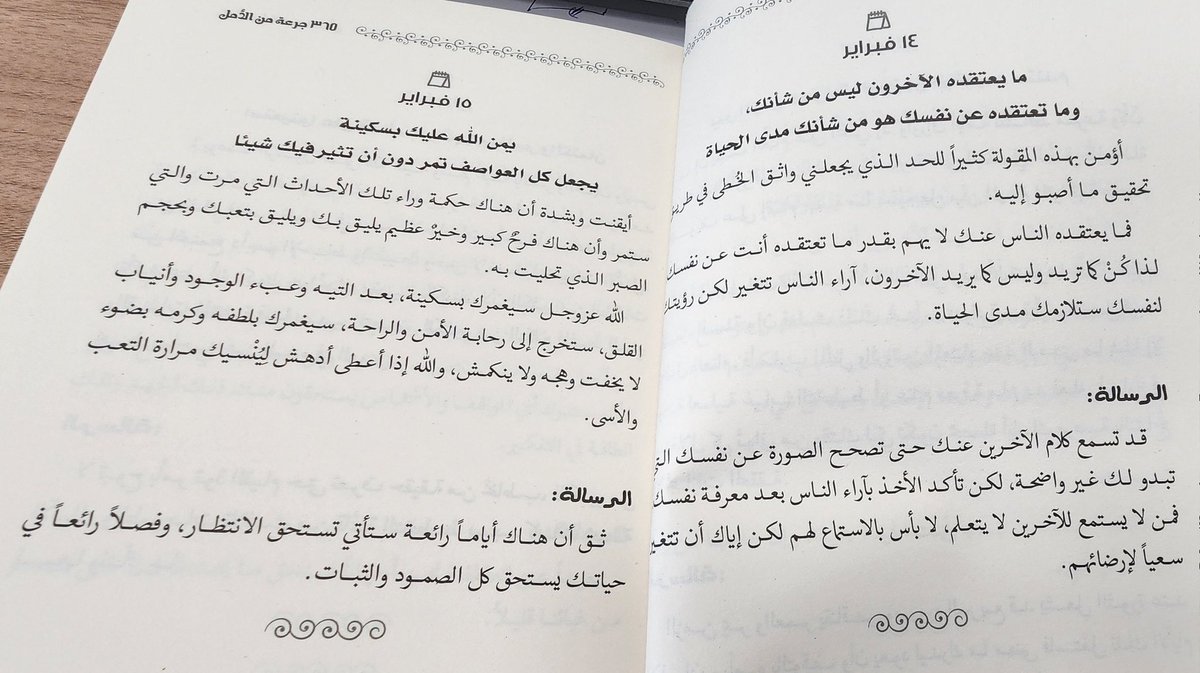 ١٤ فبراير
ما يعتقده الآخرون ليس من شأنك،
وما تعتقده عن نفسك هو من شأنك مدى الحياة
أؤمن بهذه المقولة كثيراً للحد الذي يجعلني واثق الخُطى في طريق
تحقيق ما أصبو إليه.
فما يعتقده الناس عنك لا يهم بقدر ما تعتقده أنت عن نفسك
لذا كُنْ كما تريد وليس كما يريد الآخرون، آراء الناس تتغير لكن رؤيتك
لنفسك ستلازمك مدى الحياة.
الرسالة:
قد تسمع كلام الآخرين عنك حتى تصحح الصورة عن نفسك
تبدو لك غير واضحة، لكن تأكد الأخذ بآراء الناس بعد معرفة نفسك
فمن لا يستمع للآخرين لا يتعلم، لا بأس بالاستماع لهم لكن إياك أن
سعياً لإرضائهم.
٣٦٥ جرعة من الأمل
١٥ فبراير
يمن الله عليك بسكينة
يجعل كل العواصف تمر دون أن تثير فيك شيئا
أيقنت وبشدة أن هناك حكمة وراء تلك الأحداث التي مرت والتي
ستمر وأن هناك فرحٌ كبير وخيرٌ عظيم يليق بك ويليق بتعبك وبحجم
الصبر الذي تحليت به.
الله عزوجل سيغمرك بسكينة، بعد التيه وعبء الوجود وأنياب
القلق، ستخرج إلى رحابة الأمن والراحة، سيغمرك بلطفه وكرمه بضوء
لا يخفت وهجه ولا ينكمش، والله إذا أعطى أدهش ليُنْسيك مرارة التعب
والأسى.
الرسالة:
ثق أن هناك أياماً رائعة ستأتي تستحق الانتظار، وفصلاً رائعاً في
حياتك يستحق كل الصمود والثبات.